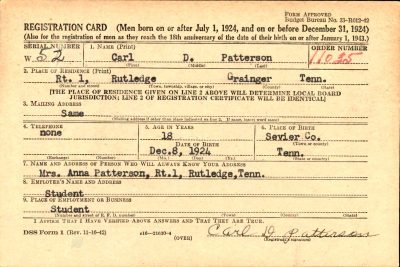 Form Approved
Budget Bureau No. 33-R012-42
REGISTRATION CARD (Men born on or after July 1, 1924, and on or before December 31, 1924)
(Also for the registration of men as they reach the 18th anniversary of the date of their birth on or after January 1, 1943.)
SERIAL NUMBER 1. NAME (Print) ORDER NUMBER
W 52 Carl D. Patterson 11025
(First) (Middle) (Last)
2. PLACE OF RESIDENCE (Print)
Rt. 1, Rutledge Grainger Tenn.
(Number and street) (Town, township, village, or city) (County) (State)
[THE PLACE OF RESIDENCE GIVEN ON LINE 2 ABOVE WILL DETERMINE LOCAL BOARD
JURISDICTION; LINE 2 OF REGISTRATION CERTIFICATE WILL BE IDENTICAL]
3. MAILING ADDRESS
Same
[Mailing address if other than place indicated on line 2. If same, insert word same]
4. TELEPHONE 5. AGE IN YEARS 6. PLACE OF BIRTH
none 18 Sevier Co.
DATE OF BIRTH (Town or county)
Dec. 8, 1924 Tenn.
(Exchange) (Number) (Mo.) (Day) (Yr.) (State or country)
7. NAME AND ADDRESS OF PERSON WHO WILL ALWAYS KNOW YOUR ADDRESS
Mrs. Anna Patterson, Rt.1, Rutledge, Tenn.
8. EMPLOYER'S NAME AND ADDRESS
Student
9. PLACE OF EMPLOYMENT OR BUSINESS
Student
(Number and street or R. F. D. number) (Town) (County) (State)
I AFFIRM THAT I HAVE VERIFIED ABOVE ANSWERS AND THAT THEY ARE TRUE.
DSS Form 1 (Rev. 11-16-42) (OVER) Carl D Patterson
(Registrant's signature)